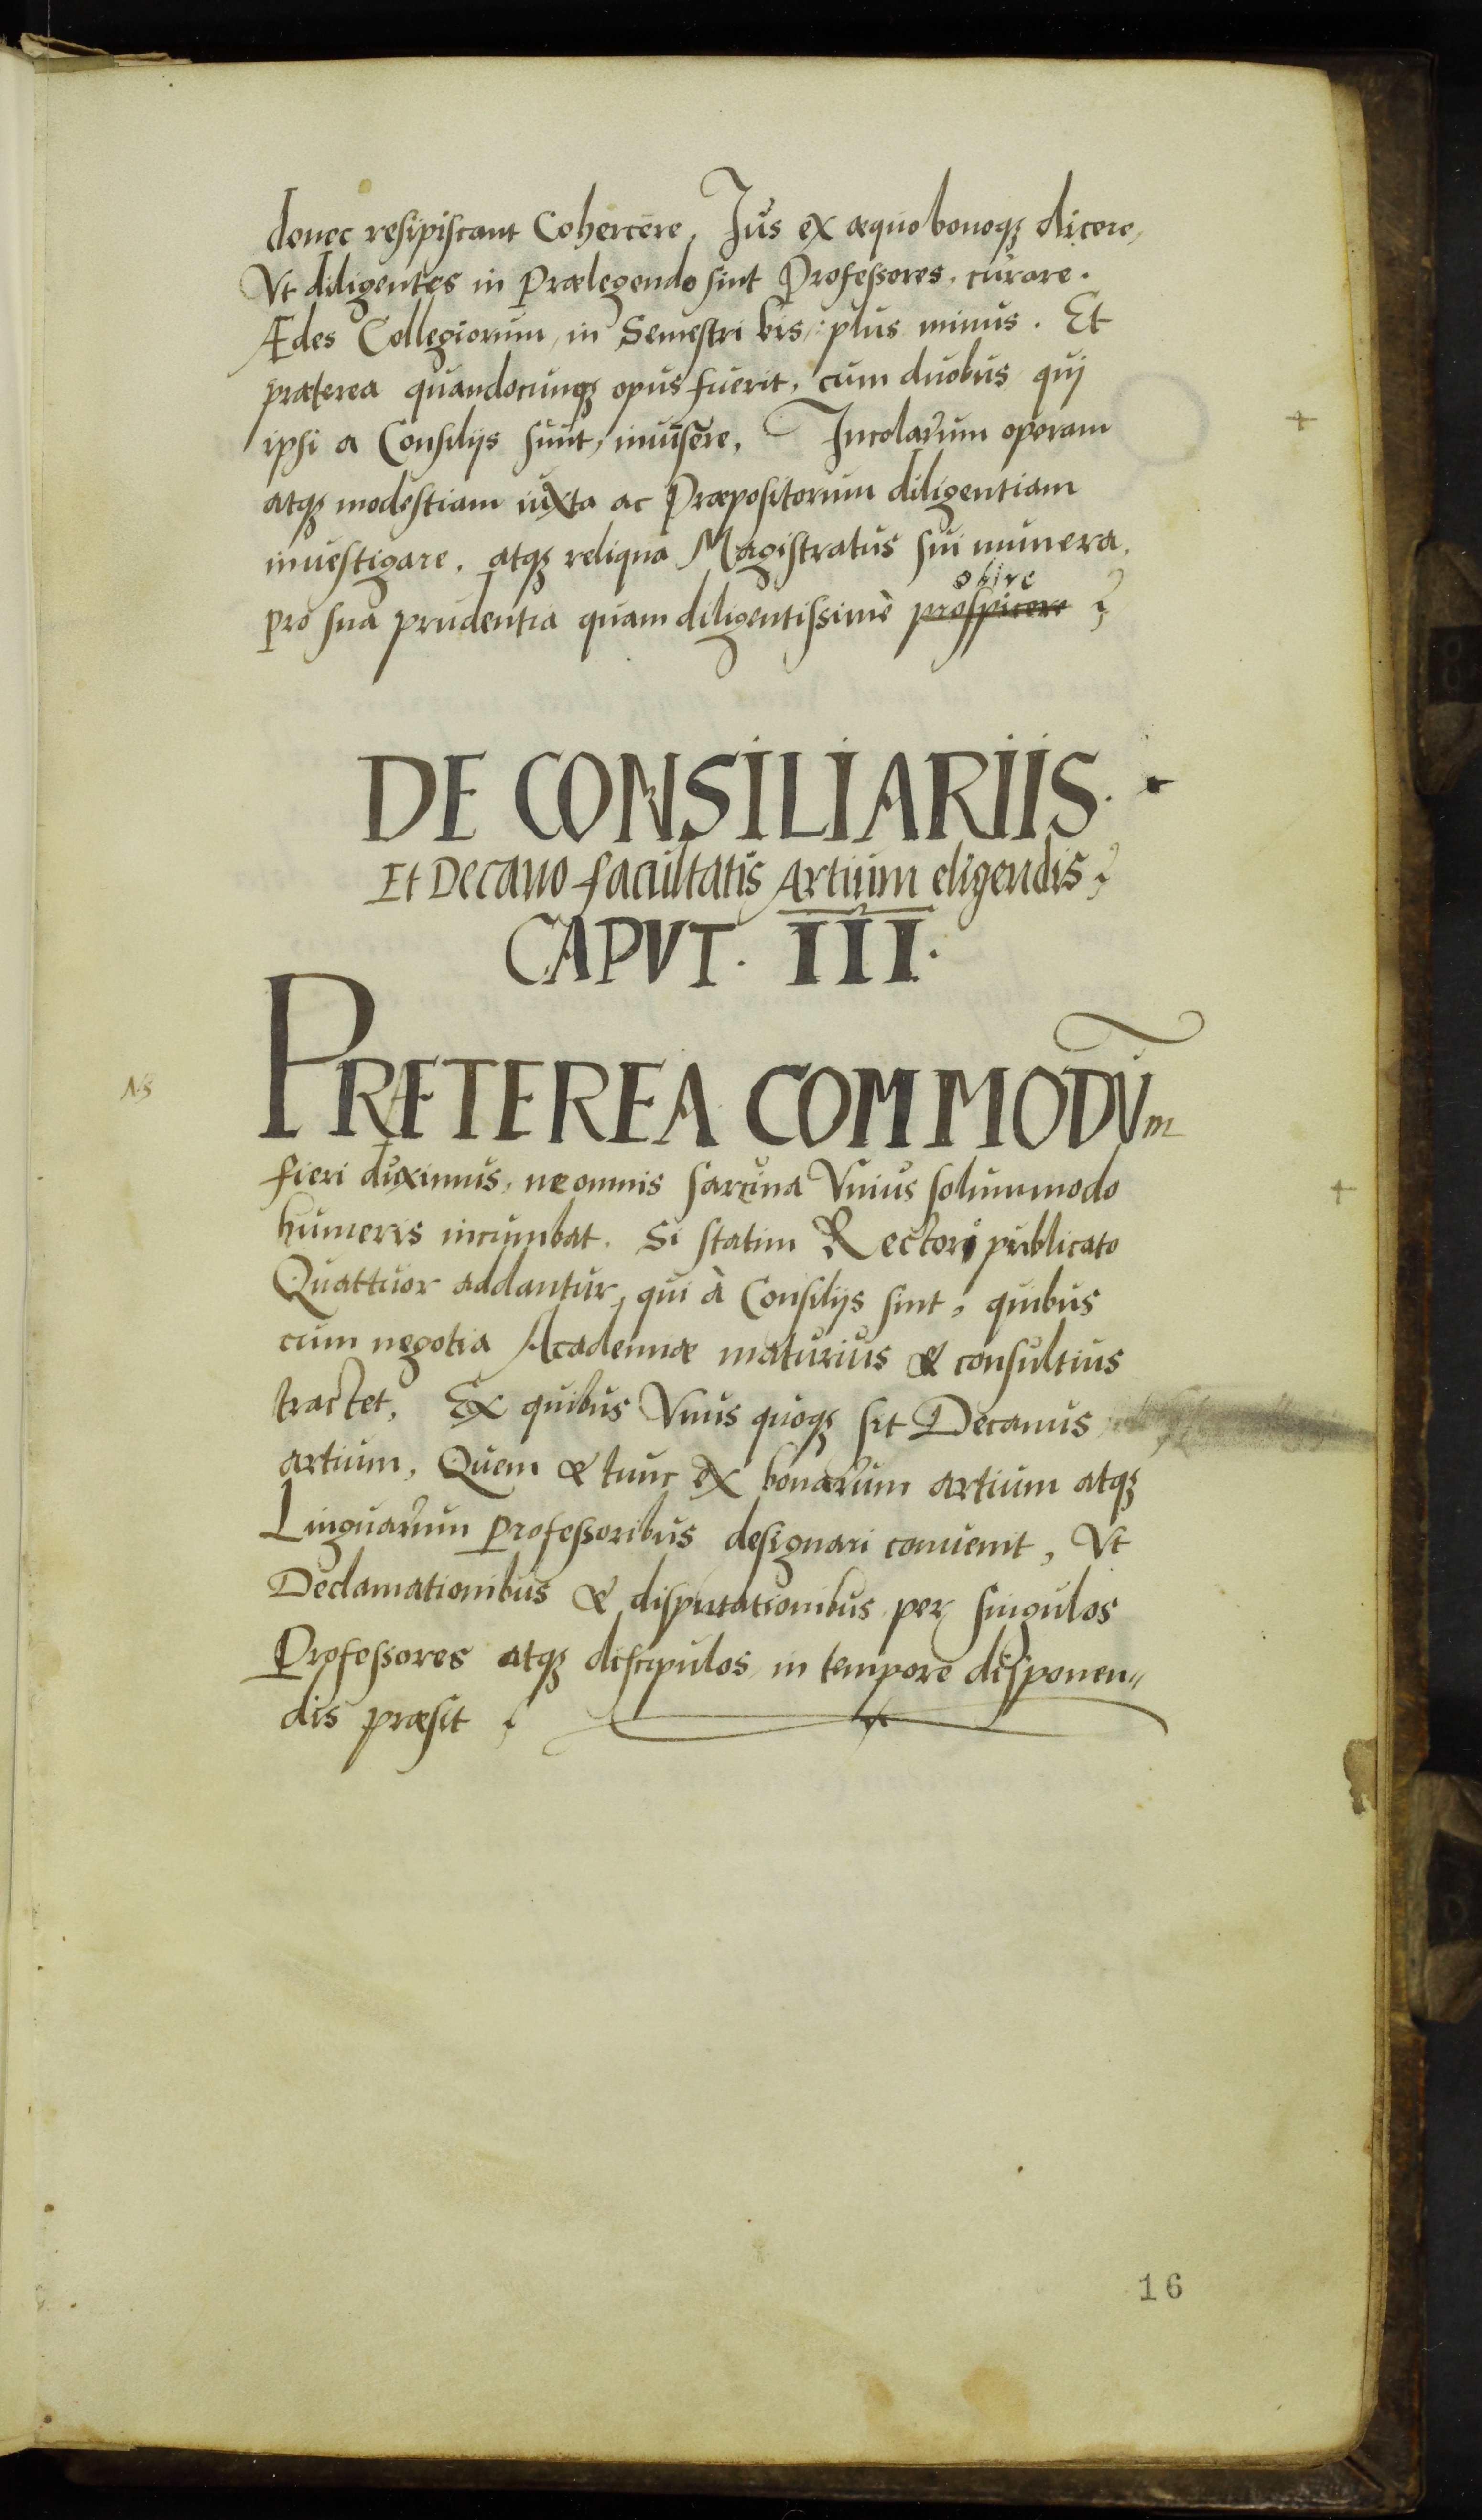 donec resipiscant Cohercere, Jus ex æquo bonoqꝫ dicere,
Vt diligentes in Prælegendo sint Professores, curare.
Ædes Collegiorum, in Semestri bis, plus minus. Et
præterea quandocunqꝫ opus fuerit, cum duobus qui
ipsi a Consilijs sunt, inuisere, Incolarum operam
atqꝫ modestiam iuxta ac Præpositorum diligentiam
inuestigare, atqꝫ reliqua Magistratus sui munera,
obire
pro sua prudentia quam diligentissimè prospicere
DE CONSILIARIIS.
Et Decano facultatis Artium eligendis
CAPVT. III.
NB
PRÆTEREA COMMODVm
fieri duximus, ne omnis sarcina Vnius solummodo
humeris incumbat. Si statim Rectori publicato
Quattuor addantur, qui à Consilijs sint, quibus
cum negotia Academiæ maturius & consultius
tractet, Ex quibus Vnus quoqꝫ sit Decanus
artium, Quem & tunc ex bonarum artium atqꝫ
Linguarum Professoribus designari conuenit, Vt
Declamationibus & disputationibus per singulos
Professores atqꝫ discipulos in tempore disponen„
dis præsit
16